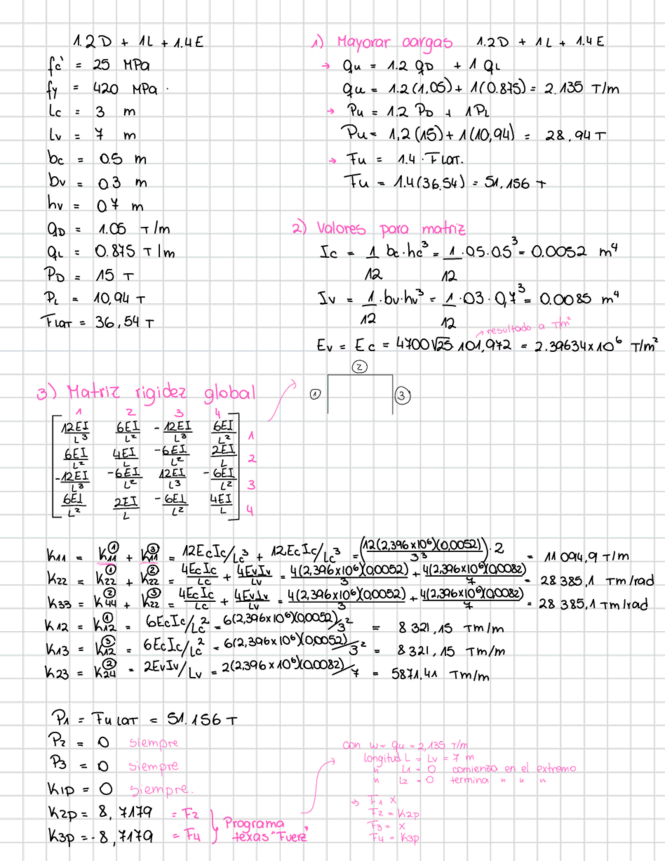 1.2D + 1L + 1.4E
fc' = 25 MPa
fy = 420 MPa.
Lc = 3 m
Lv = 7 m
bc = 0.5 m
bv = 0.3 m
hv = 0.7 m
qD = 1.05 T/m
qL = 0.875 T/m
PD = 15 T
PL = 10,94 T
FLAT = 36,54 T
1) Mayorar cargas 1.2D + 1L + 1.4E
→ qu = 1.2 qD + 1 qL
qu = 1.2(1,05) + 1(0.875) = 2.135 T/m
→ Pu = 1.2 PD + 1PL
Pu = 1,2(15) + 1(10,94) = 28,94 T
→ Fu = 1.4 · FLAT.
Fu = 1.4(36,54) = 51,156 T
2) Valores para matriz
Ic = 1/12 bc·hc³ = 1/12 · 0.5·0.5³ = 0.0052 m⁴
Iv = 1/12 · bv·hv³ = 1/12 · 0.3 · 0,7³ = 0.0085 m⁴
↑ resultado a T/m²
Ev = Ec = 4700√25 · 101,972 = 2.39634x10⁶ T/m²
3) Matriz rigidez global
① ② ③
1 2 3 4
12EI/L³ 6EI/L² -12EI/L³ 6EI/L² 1
6EI/L² 4EI/L -6EI/L² 2EI/L 2
-12EI/L³ -6EI/L² 12EI/L³ -6EI/L² 3
6EI/L² 2EI/L -6EI/L² 4EI/L 4
K11 = K11① + K11③ = 12EcIc/Lc³ + 12EcIc/Lc³ = (12(2,396x10⁶)(0,0052)/3³) · 2 = 11 094,9 T/m
K22 = K22① + K22② = 4EcIc/Lc + 4EvIv/Lv = 4(2,396x10⁶)(0,0052)/3 + 4(2,396x10⁶)(0,0082)/7 = 28 385,1 Tm/rad
K33 = K44② + K22③ = 4EcIc/Lc + 4EvIv/Lv = 4(2,396x10⁶)(0,0052)/3 + 4(2,396x10⁶)(0,0082)/7 = 28 385,1 Tm/rad
K12 = K12① = 6EcIc/Lc² = 6(2,396x10⁶)(0,0052)/3² = 8 321,15 Tm/m
K13 = K12③ = 6EcIc/Lc² = 6(2,396x10⁶)(0,0052)/3² = 8 321,15 Tm/m
K23 = K24② = 2EvIv/Lv = 2(2,396x10⁶)(0,0082)/7 = 5871.41 Tm/m
P1 = Fu LAT = 51.156 T
P2 = 0 siempre
P3 = 0 siempre
K1P = 0 siempre.
K2P = 8,7179 = F2
K3P = -8,7179 = F4
Programa
texas "Fuere"
con w = qu = 2,135 T/m
longitud L = Lv = 7 m
" L1 = 0 comienza en el extremo
" L2 = 0 termina " " "
⇒ F1 X
F2 = K2P
F3 = X
F4 = K3P